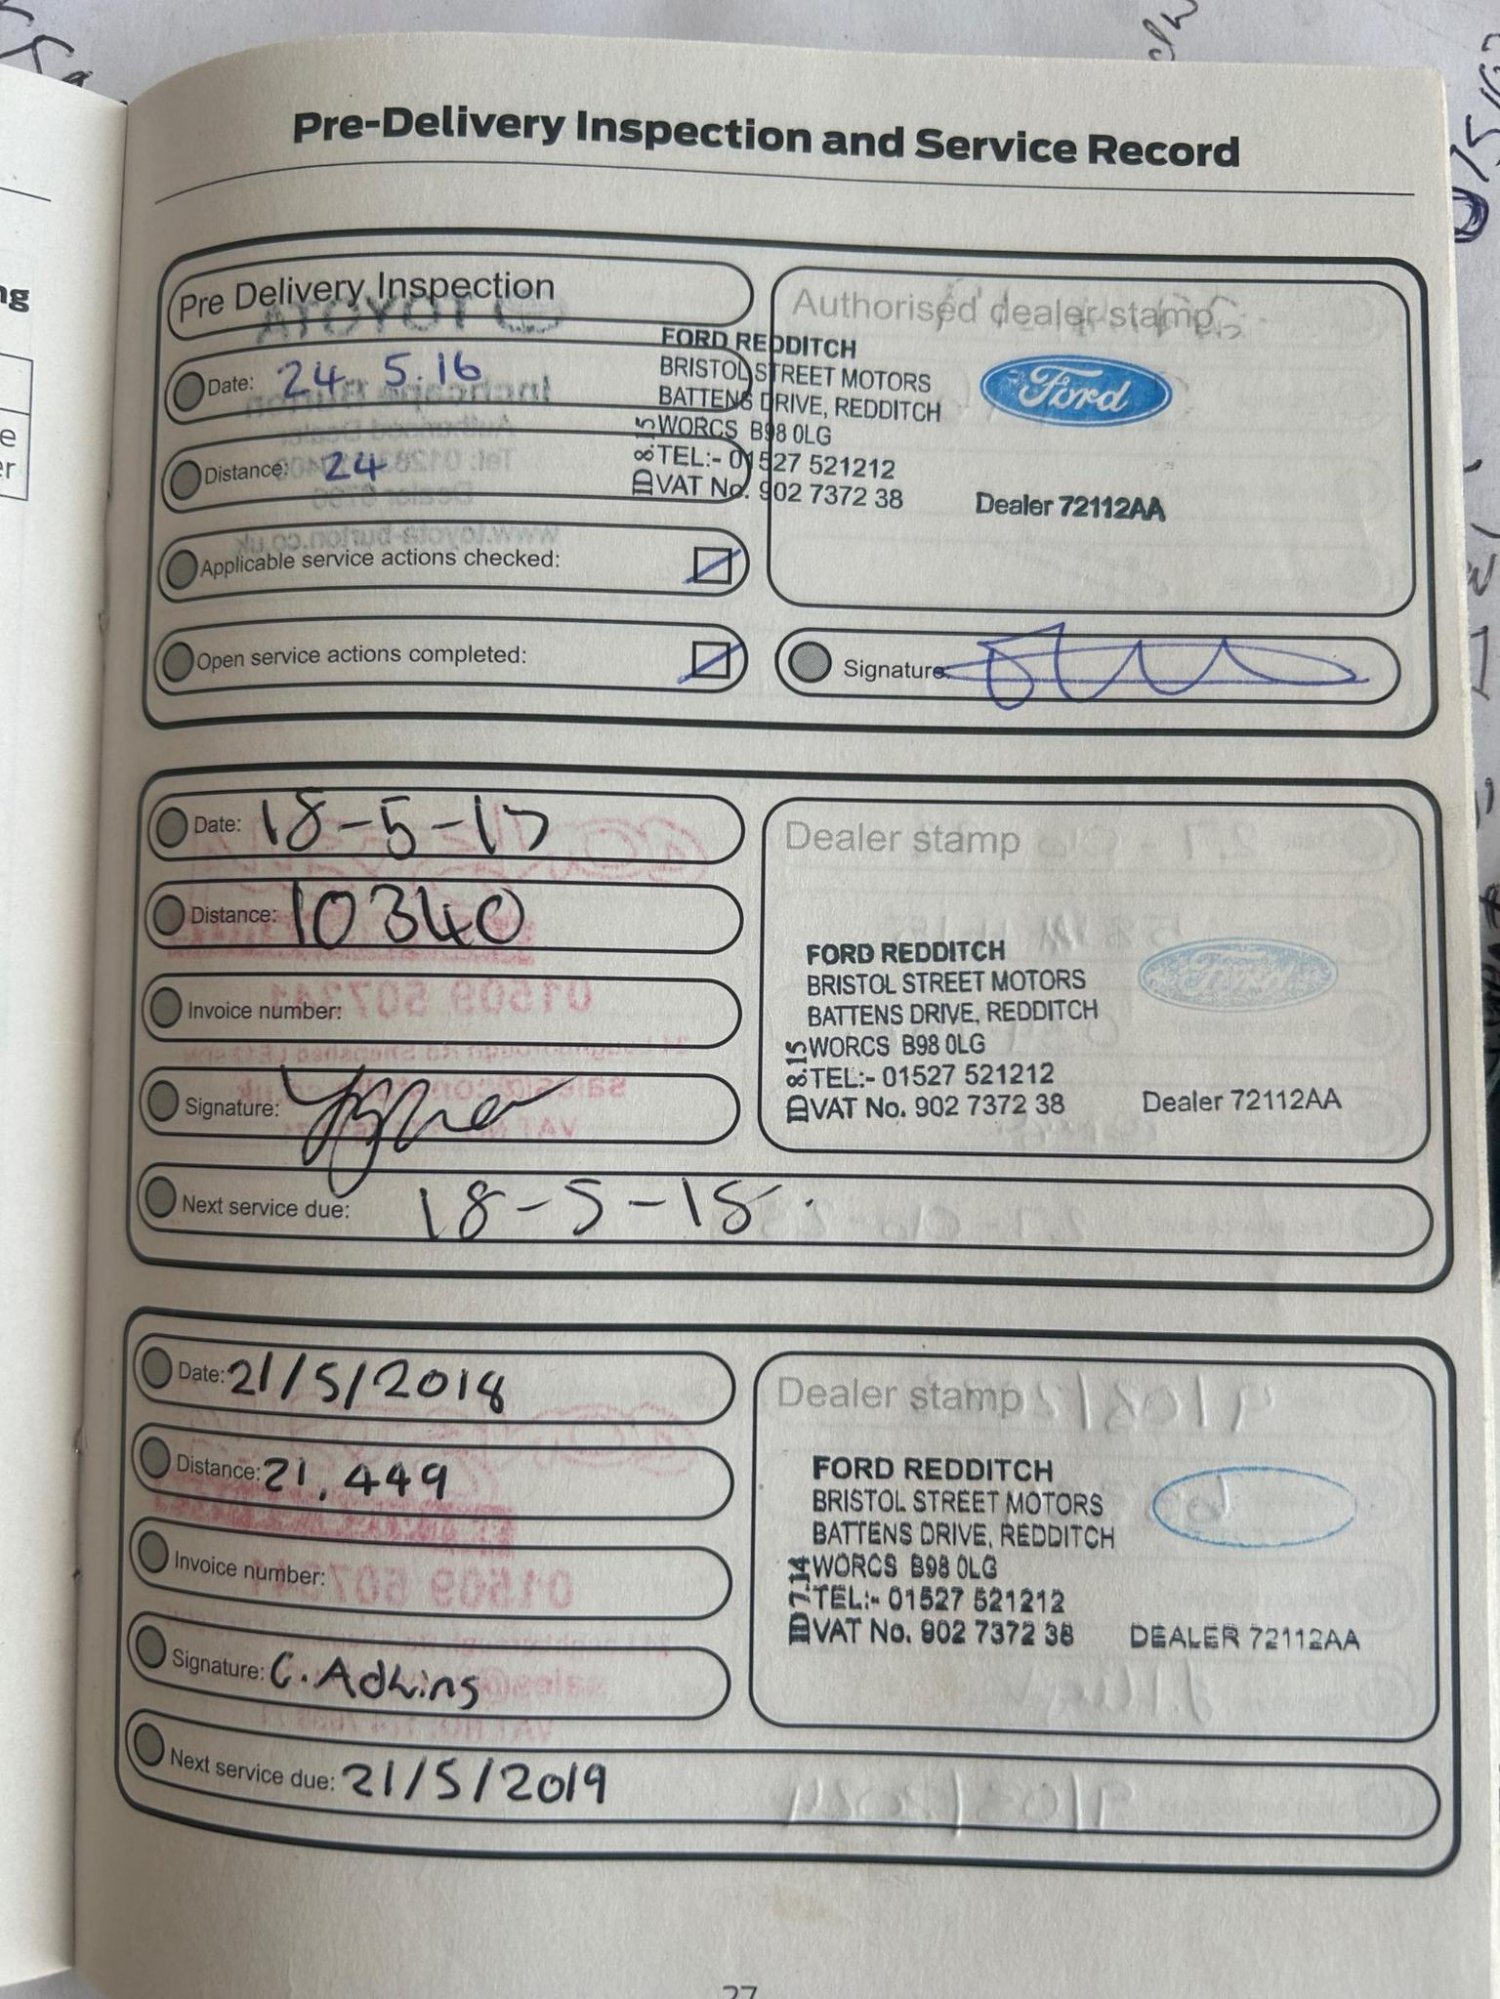 Pre-Delivery Inspection and Service Record
Pre Delivery Inspection
Date: 24. 5.16
Distance: 24
Applicable service actions checked:
Open service actions completed:
Authorised dealer stamp
FORD REDDITCH
BRISTOL STREET MOTORS
BATTENS DRIVE, REDDITCH
WORCS B98 0LG
TEL:- 01527 521212
VAT No. 902 7372 38
ID 8.15
Ford
Dealer 72112AA
Signature:
Date: 18-5-17
Distance: 10340
Invoice number:
Signature:
Next service due: 18-5-18
Dealer stamp
FORD REDDITCH
BRISTOL STREET MOTORS
BATTENS DRIVE, REDDITCH
WORCS B98 0LG
TEL:- 01527 521212
VAT No. 902 7372 38
ID 8.15
Ford
Dealer 72112AA
Date: 21/5/2018
Distance: 21,449
Invoice number:
Signature: C. Adkins
Next service due: 21/5/2019
Dealer stamp
FORD REDDITCH
BRISTOL STREET MOTORS
BATTENS DRIVE, REDDITCH
WORCS B98 0LG
TEL:- 01527 521212
VAT No. 902 7372 38
ID 7.14
DEALER 72112AA
27